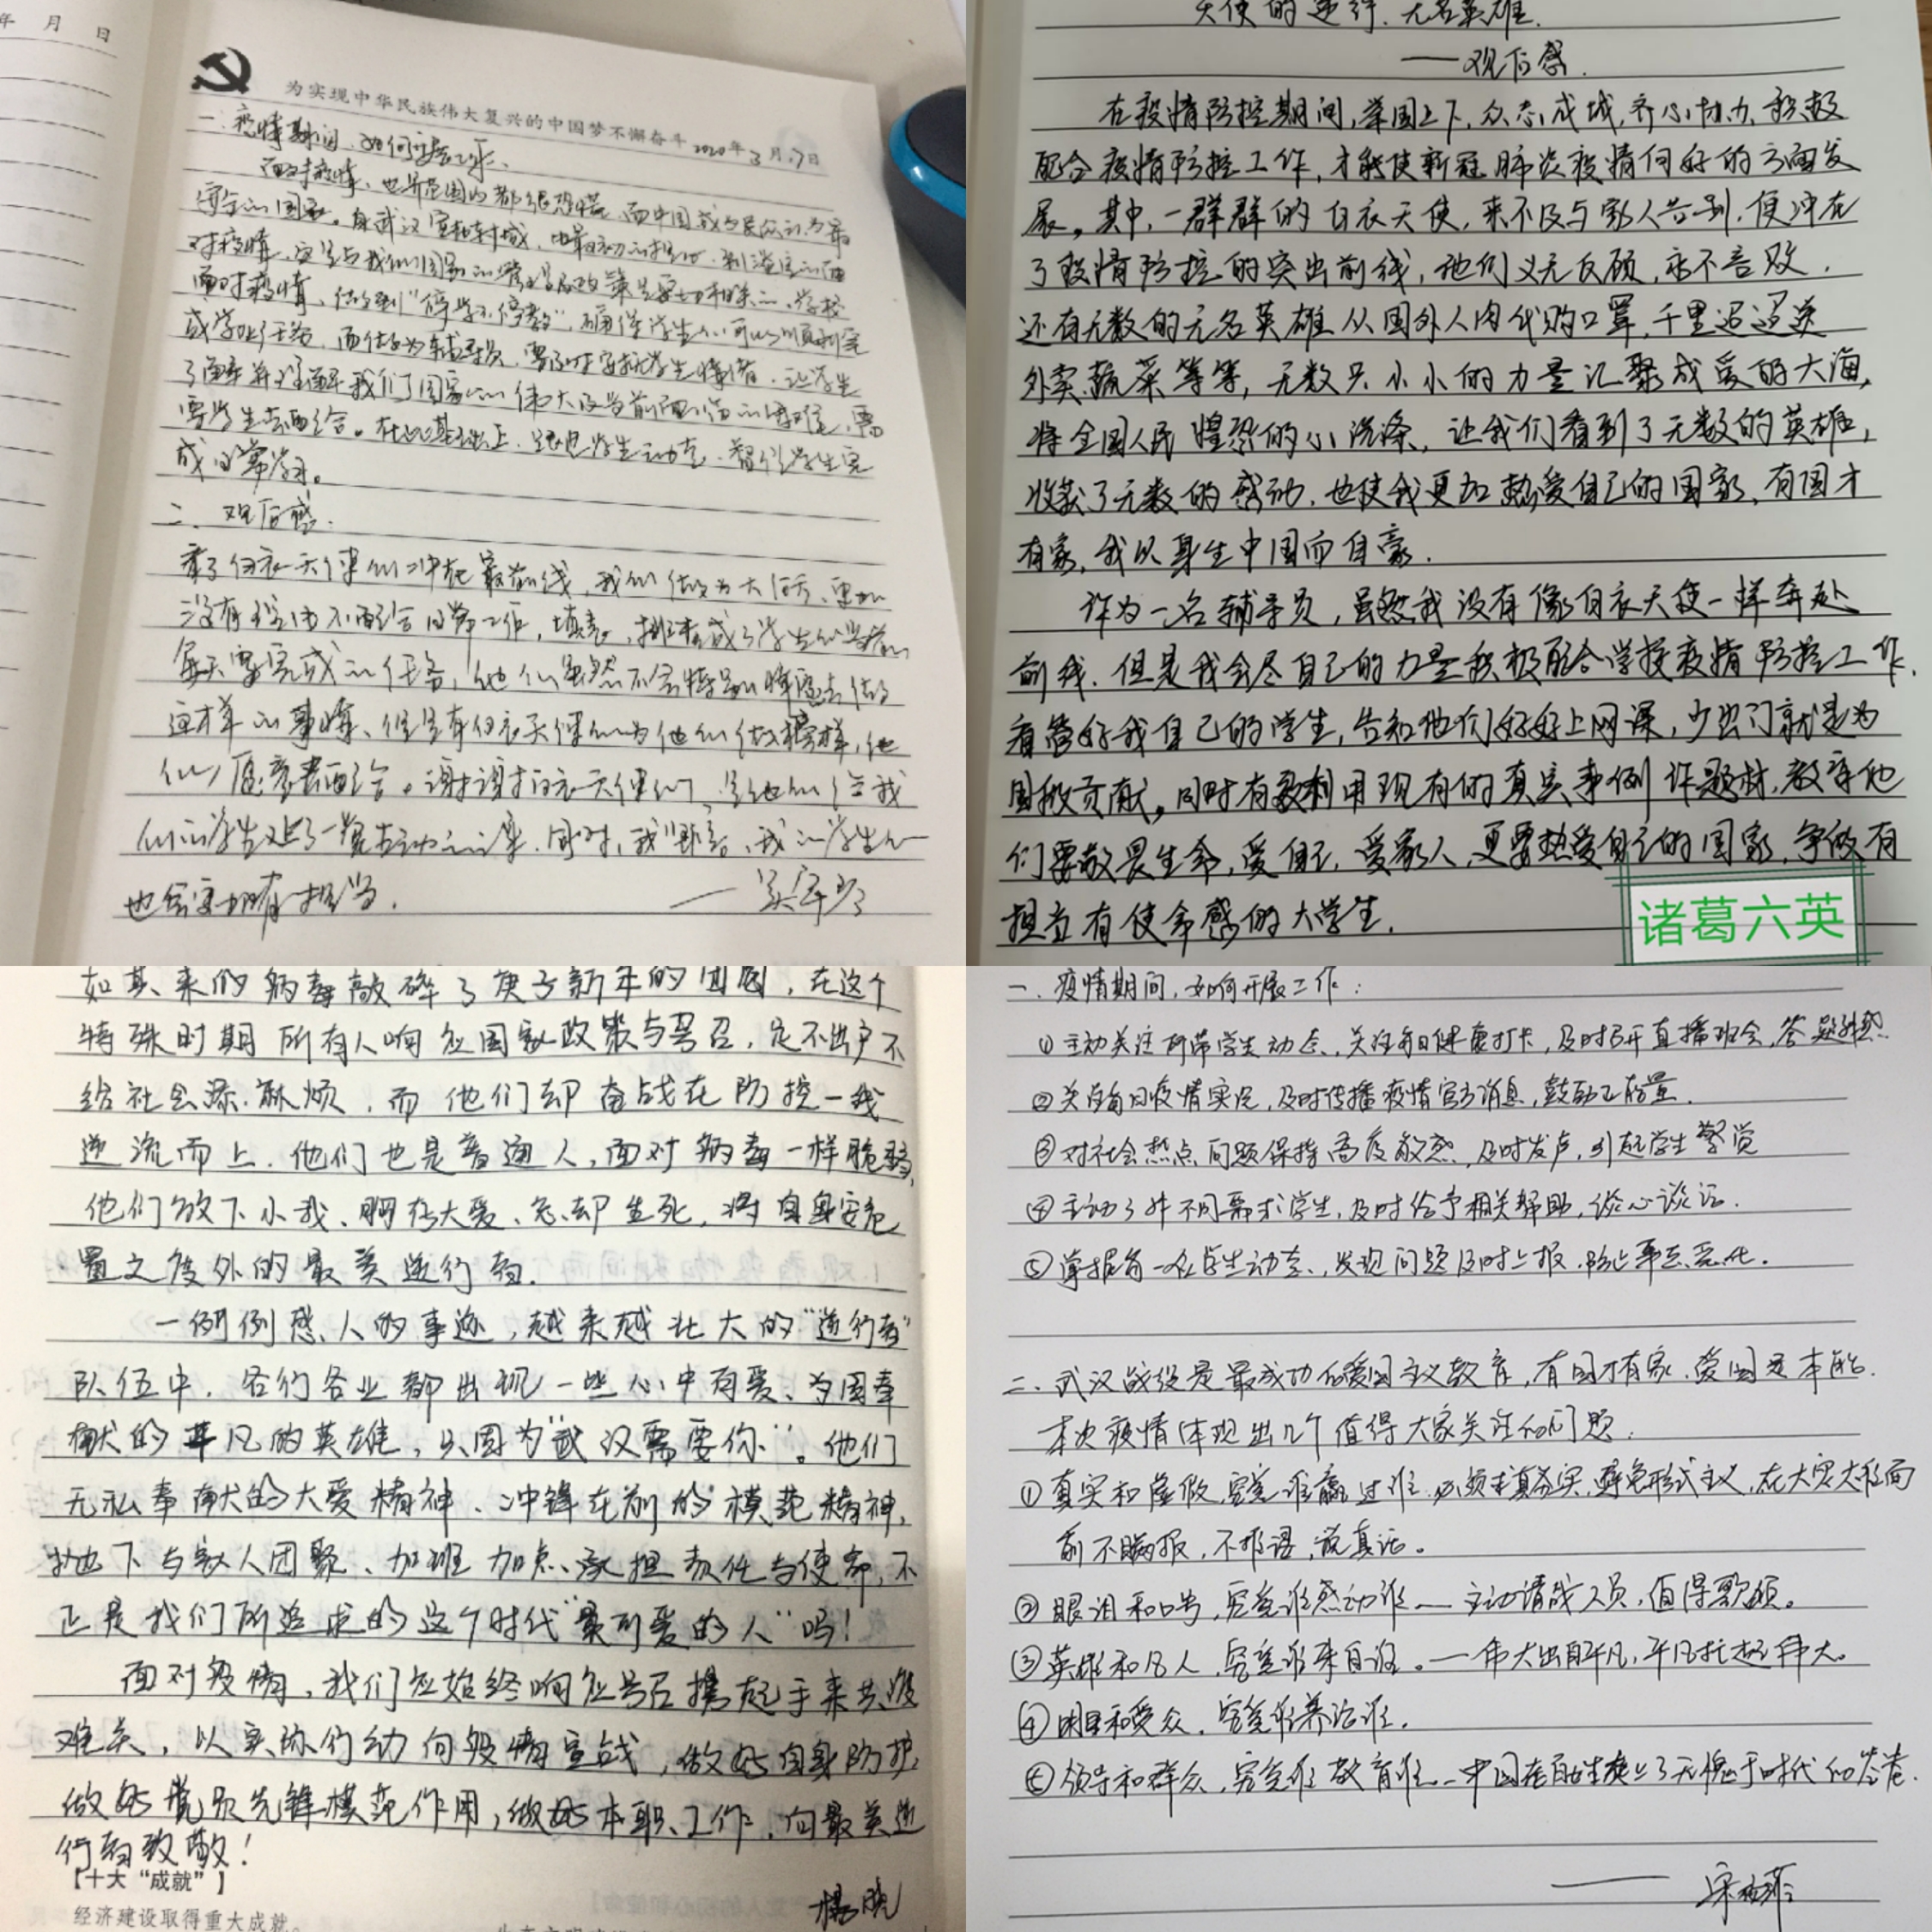 年 月 日
为实现中华民族伟大复兴的中国梦不懈奋斗 2020年3月17日
一、疫情期间,如何开展工作、
面对疫情、世界范围内都很恐慌、而中国成为民众认为最
安全的国家。
面对疫情、做到"停学不停教",确保学生们可以顺利完
成学业任务,而作为辅导员,要及时安抚学生情绪,让学生
了解并理解我们国家的伟大及当前面临的困难,需
要学生去配合。在此基础上,
成日常学习。
二、观后感:
看了白衣天使们冲在最前线,我们作为大后方、更加
没有理由不配合日常工作,填表,排查成了学生们
每天要完成的任务,他们虽然不会特别情愿去做
这样的事情、但是有白衣天使们为他们做榜样,他
们愿意去配合。谢谢白衣天使们,是他们给我
们的学生上了一堂生动的课.同时,我坚信、我的学生们
也会更加有担当.
天使的逆行.无名英雄.
——观后感.
在疫情防控期间,举国上下,众志成城,齐心协力,积极
配合疫情防控工作,才能使新冠肺炎疫情向好的方面发
展。其中,一群群的白衣天使,来不及与家人告别,便冲在
了疫情防控的突出前线,他们义无反顾,永不言败.
还有无数的无名英雄从国外人肉代购口罩,千里迢迢送
外卖蔬菜等等,无数只小小的力量汇聚成爱的大海,
将全国人民惶恐的心洗涤,让我们看到了无数的英雄,
收获了无数的感动.也使我更加热爱自己的国家,有国才
有家,我以身生中国而自豪.
作为一名辅导员,虽然我没有像白衣天使一样奔赴
前线.但是我会尽自己的力量积极配合学校疫情防控工作.
看管好我自己的学生,告知他们好好上网课,少出门就是为
国做贡献。同时有效利用现有的真实事例作题材,教导他
们要敬畏生命,爱自己,爱家人,更要热爱自己的国家,争做有
担当有使命感的大学生.
诸葛六英
如其来的病毒敲碎了庚子新年的团圆,在这个
特殊时期所有人响应国家政策与号召,足不出户不
给社会添麻烦,而他们却奋战在防控一线
逆流而上.他们也是普通人,面对病毒一样脆弱,
他们放下小我、胸存大爱、忘却生死,将自身安危
置之度外的最美逆行者.
一例例感人的事迹,越来越壮大的"逆行者"
队伍中.各行各业都出现一些心中有爱、为国奉
献的平凡的英雄,只因为"武汉需要你"。他们
无私奉献的大爱精神、冲锋在前的模范精神,
抛下与家人团聚、加班加点、承担责任与使命,不
正是我们所追求的这个时代"最可爱的人"吗!
面对疫情,我们应始终响应号召携起手来共渡
难关,以实际行动向疫情宣战,做好自身防护,
做好党员先锋模范作用,做好本职工作.向最美逆
行者致敬!
【十大"成就"】
经济建设取得重大成就。
杨晓
一.疫情期间,如何开展工作:
①主动关注所带学生动态,关注每日健康打卡,及时召开直播班会,答疑解惑.
②关注每日疫情实况,及时传播疫情官方消息,鼓励正能量.
③对社会热点问题保持高度敏感,及时发声,引起学生警觉
④主动了解不同需求学生,及时给予相关帮助,谈心谈话.
⑤掌握每一位学生动态,发现问题及时上报,防止事态恶化.
二.武汉战役是最成功的爱国主义教育,有国才有家.爱国是本能.
本次疫情体现出几个值得大家关注的问题.
①真实和虚假,究竟谁赢过谁.必须求真务实,避免形式主义,在大灾大难面
前不瞒报,不拒谣,说真话。
②眼泪和口号,究竟谁感动谁——主动请战人员,值得歌颂。
③英雄和凡人,究竟谁来自谁。—伟大出自平凡,平凡托起伟大。
④明星和受众,究竟谁养活谁.
⑤领导和群众,究竟谁教育谁—中国老百姓交上了无愧于时代的答卷.